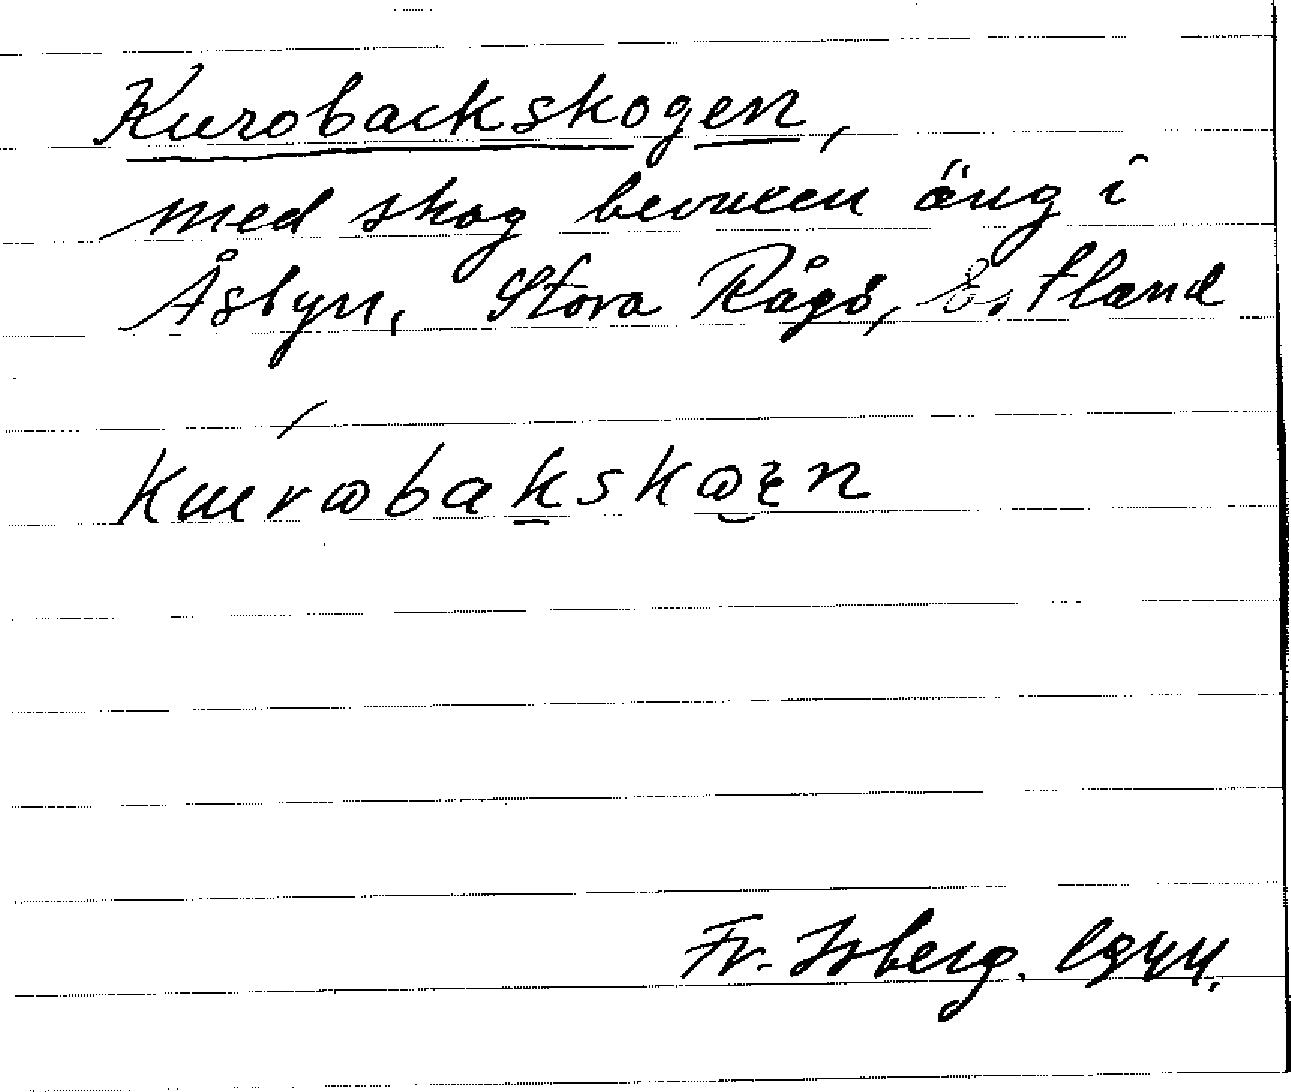 Kurobackskogen,
med skog bevuxen äng i
Åsbyn, Stora Rågö, Estland
kurωbakskωgn
Fr. Isberg. 1944.